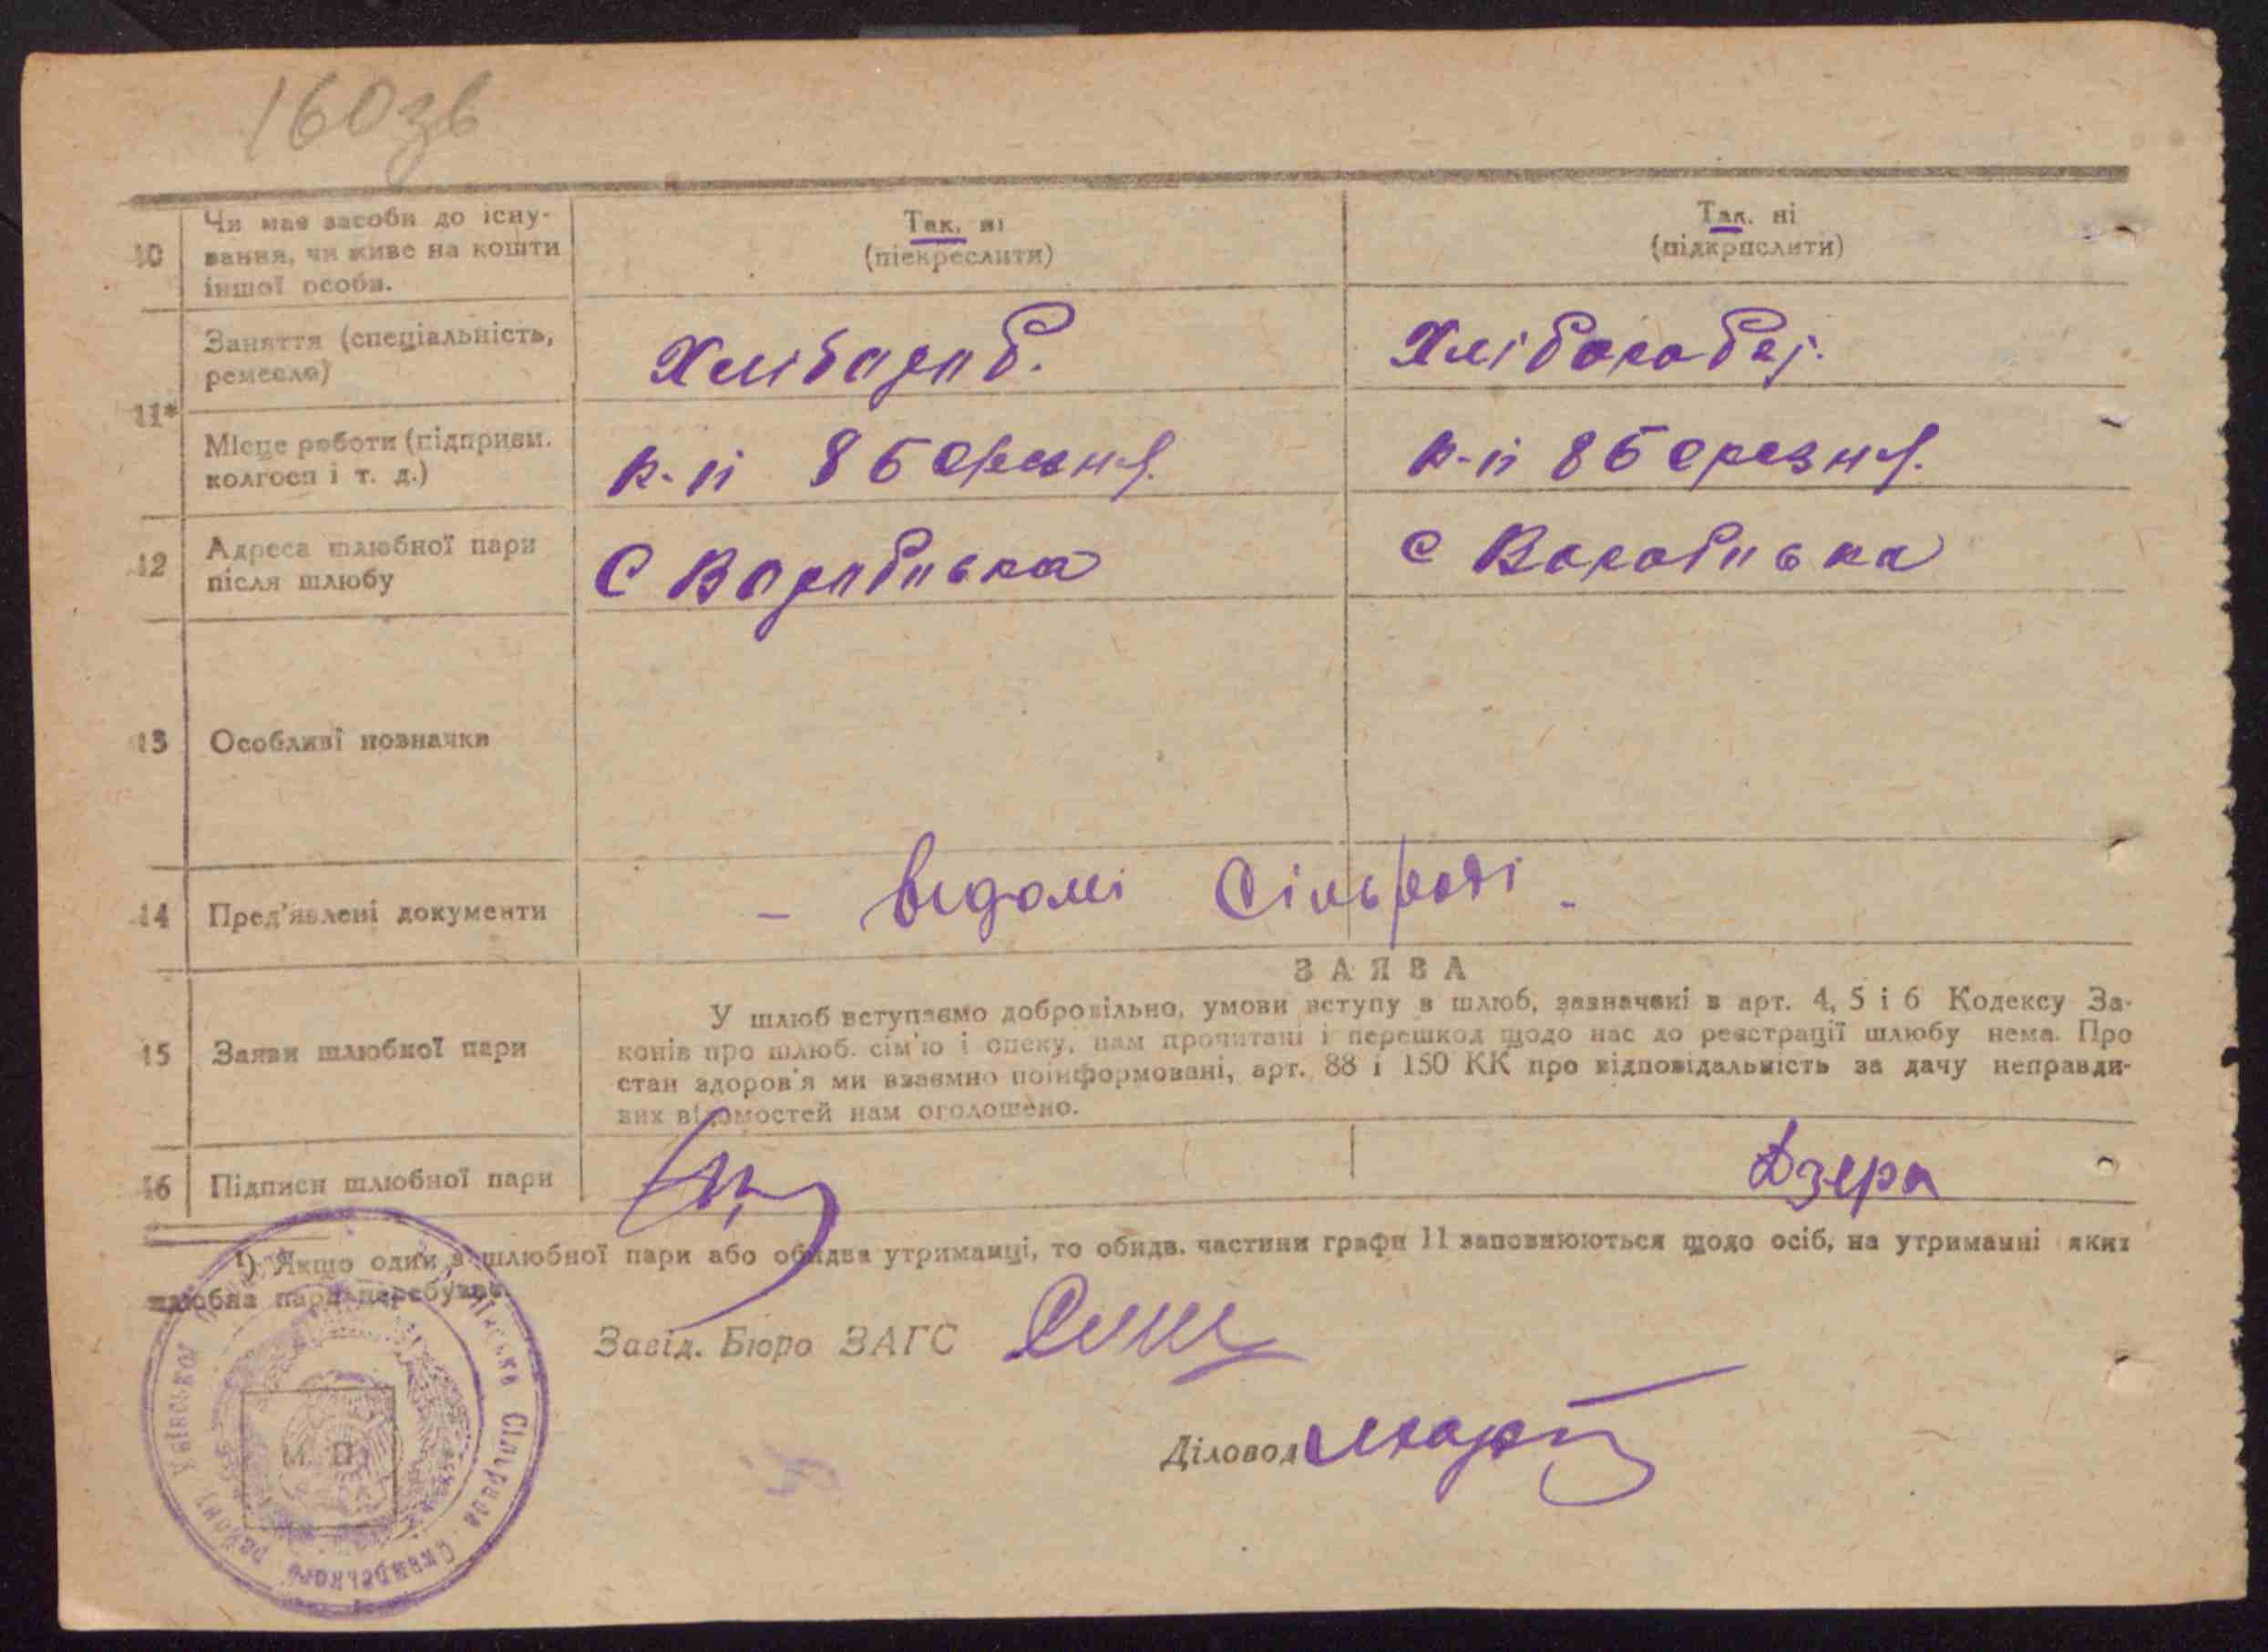 160зв
10
Чи має засоби до існу-
вання, чи живе на кошти
іншої особи.
Так. ні
(піекреслити)
Так. ні
(підкрпслити)
11*
Заняття (спеціальність,
ремесло)
Хлібароб.
Хлібороб
Місце роботи (підприєм.
колгосп і т. д.)
к-п 8 березня.
к-п 8 березня.
12
Адреса шлюбної пари
після шлюбу
С Воробиівка
с Воробиівка
13
Особливі позначки
14
Пред'явлені документи
– відомі Сільраді –
15
Заяви шлюбної пари
ЗАЯВА
У шлюб вступаємо добровільно, умови вступу в шлюб, зазначені в арт. 4, 5 і 6 Кодексу За-
конів про шлюб. сім'ю і опеку, нам прочитані і перешкод щодо нас до реєстрації шлюбу нема. Про
стан здоров'я ми взаємно поінформовані, арт. 88 і 150 КК про відповідальність за дачу неправди-
вих відомостей нам оголошено.
16
Підписи шлюбної пари
Дзера
¹) Якщо один з шлюбної пари або обидва утриманці, то обидв. частини графи 11 заповнюються щодо осіб, на утриманні яких
шлюбна пара перебуває.
Завід. Бюро ЗАГС
Діловод
М. П.
Сільрада Сквирського району Київської